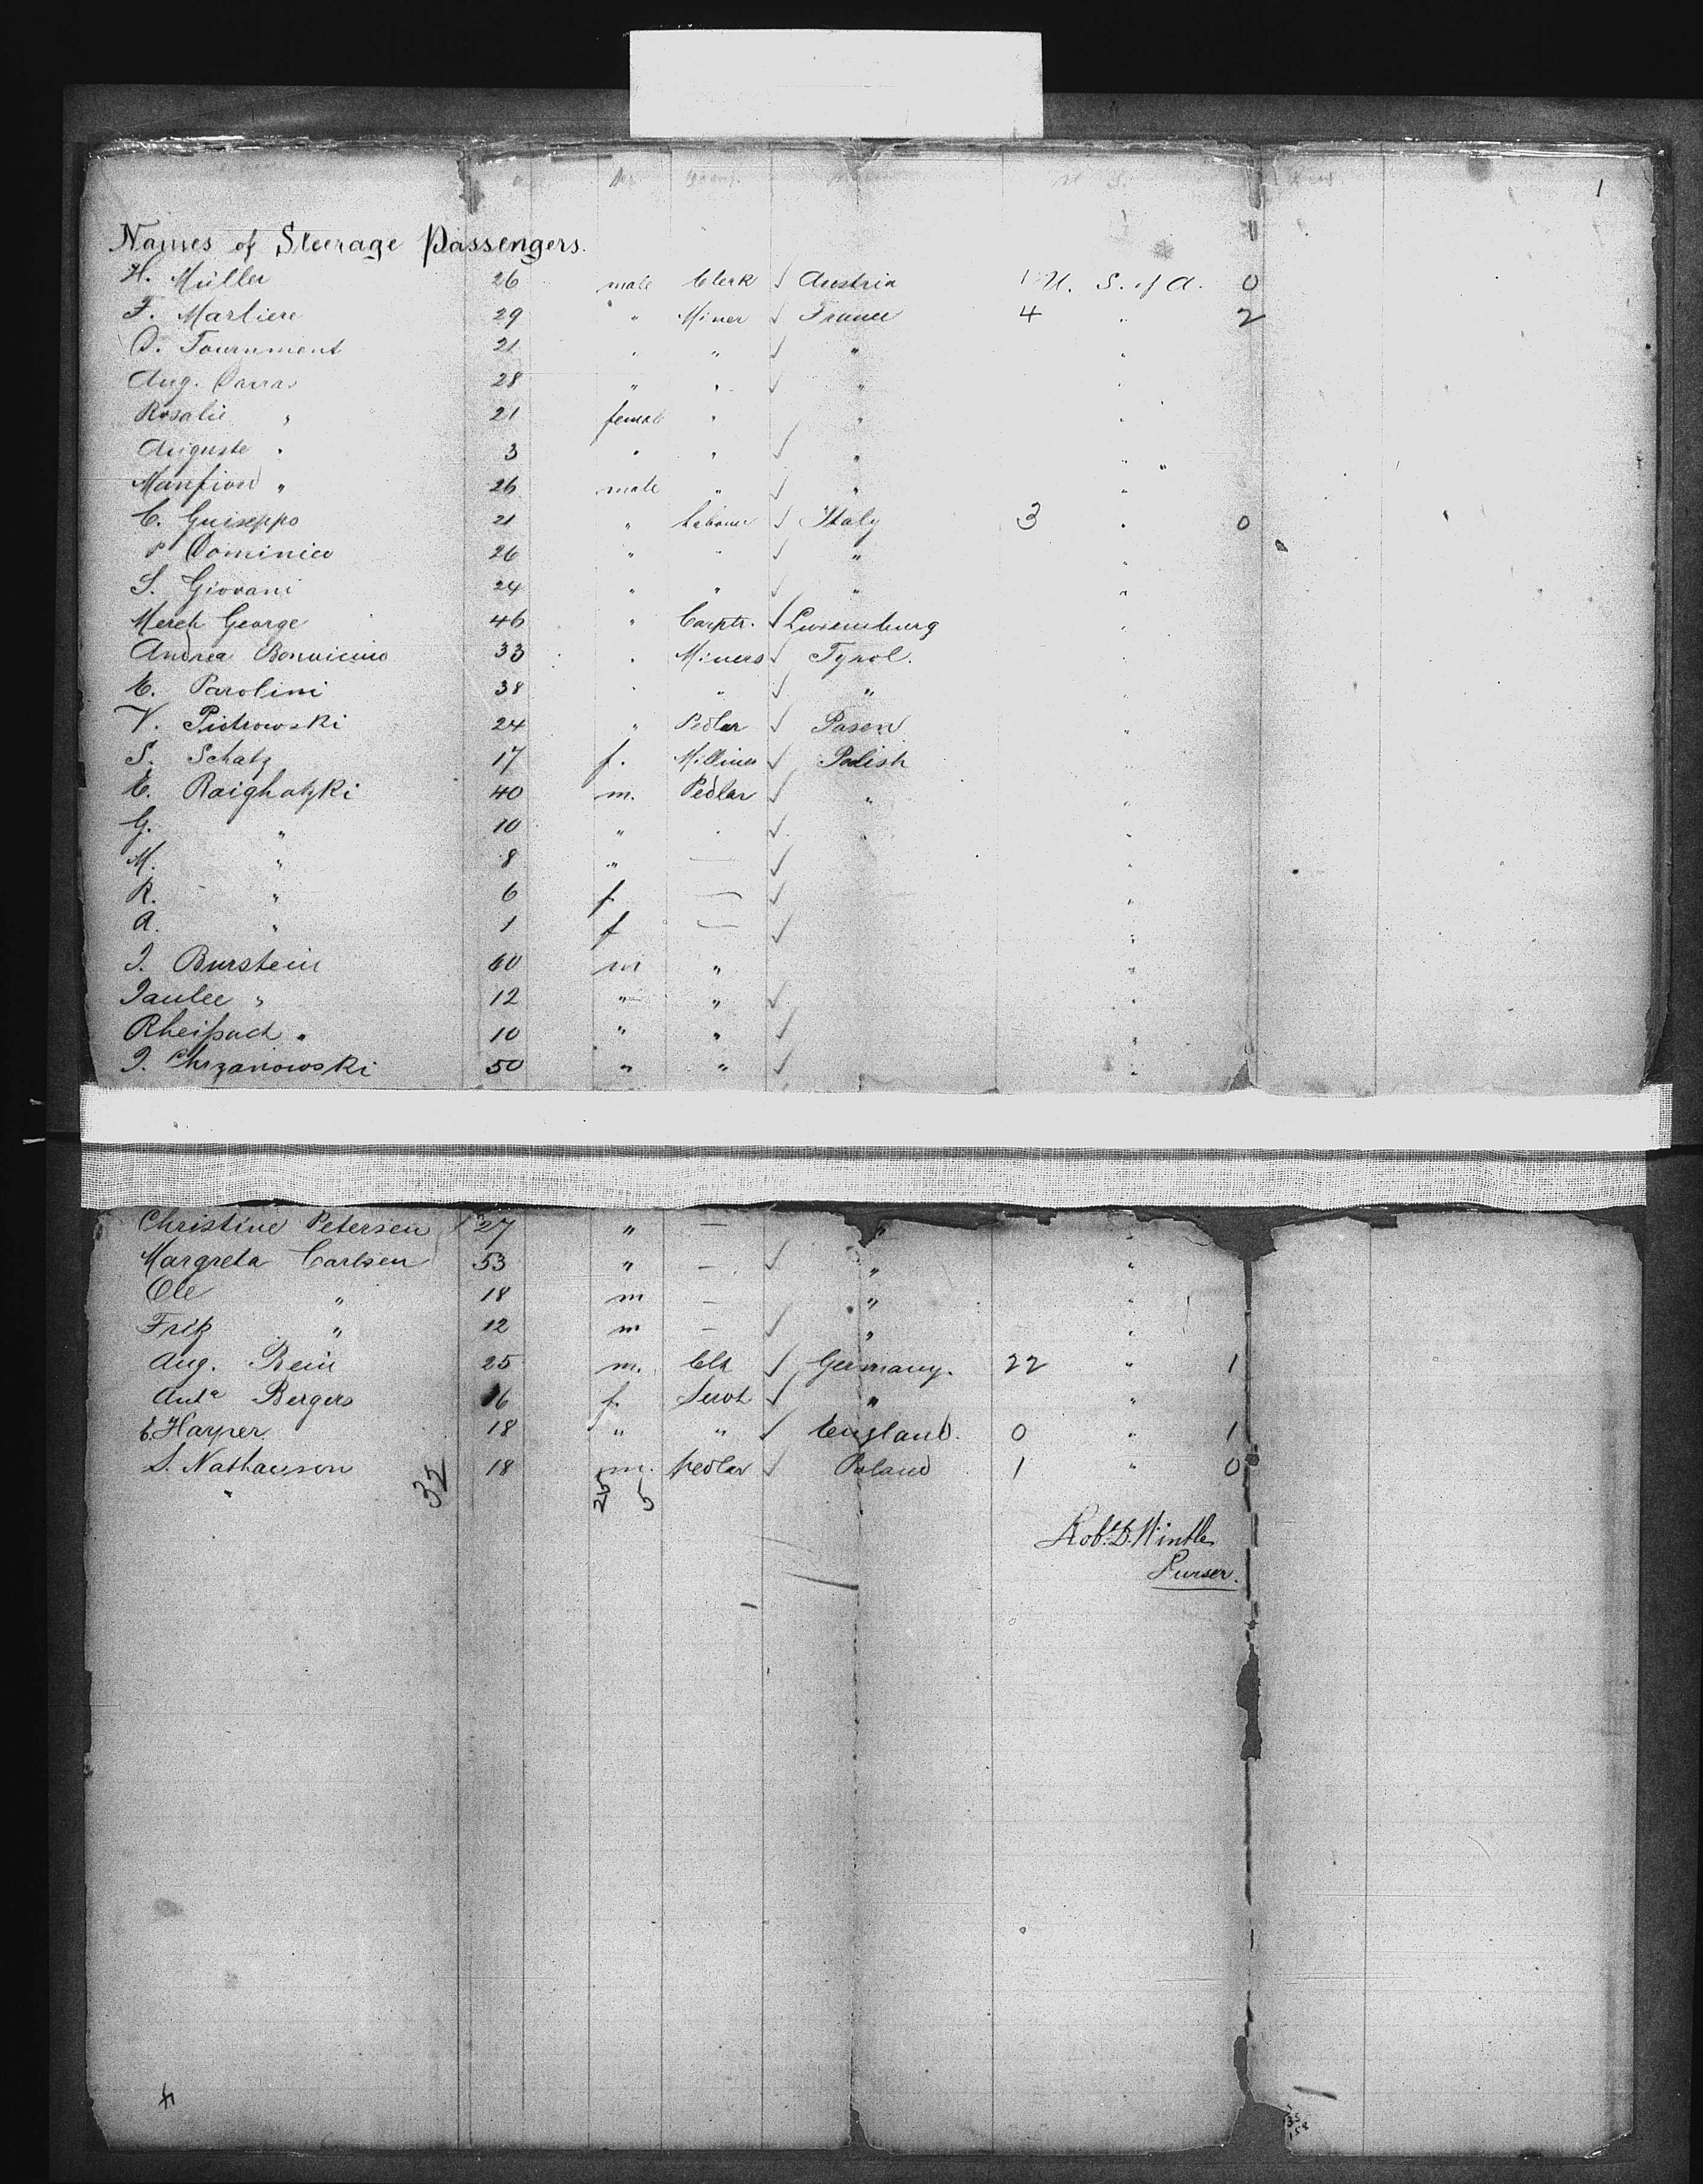 1
Names of Steerage Passengers.
H. Müller 26 male Clerk ✓ Austria 1 U. S. of A. 0
F. Marliere 29 " Miner ✓ France 4 " 2
O. Tournment 21 " " ✓ " "
Aug. Darras 28 " " ✓ " "
Rosalie " 21 female " " "
Auguste " 3 " " ✓ " " "
" 26 male " ✓ " "
C. Guiseppo 21 " Labour ✓ Italy 3 " 0
P Dominico 26 " " ✓ " "
S. Giovani 24 " " ✓ " "
Merch George 46 " Carptr. ✓ Luxemburg "
Andrea Bonvicino 33 " Miners ✓ Tyrol. "
E. Parolini 38 " " ✓ " "
V. Piotrowski 24 " Pedlar ✓ Posen "
S. Schatz 17 f. Milliner ✓ Polish
E. Raighatzki 40 m. Pedlar ✓ " "
G. " 10 " " ✓ " "
M. " 8 " — ✓ "
R. " 6 f — ✓ "
A. " 1 f — ✓ "
J. Burstein 60 m " "
" 12 " " ✓ "
" 10 " " ✓ "
J. Chrzanowski 50 " " ✓ "
Christine Petersen 27 " — " "
Margreta Carlsen 53 " — ✓ " "
Ole " 18 m — " "
Fritz " 12 m — ✓ " "
Aug. Rein 25 m. Clk ✓ Germany. 22 " 1
Anta Bergers 16 f. Servt ✓ " "
E. Harper 18 " " ✓ England. 0 " 1
S. Nathanson 18 m. Pedlar ✓ Poland 1 " 0
32 25 5
Robt. D. Wintle
Purser.